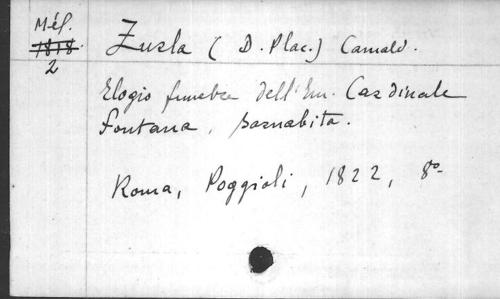 Mél.
1818
2
Zurla (D. Plac.) Camald.
Elogio funebre dell'Em. Cardinale
Fontana, barnabita.
Roma, Poggioli, 1822, 8º